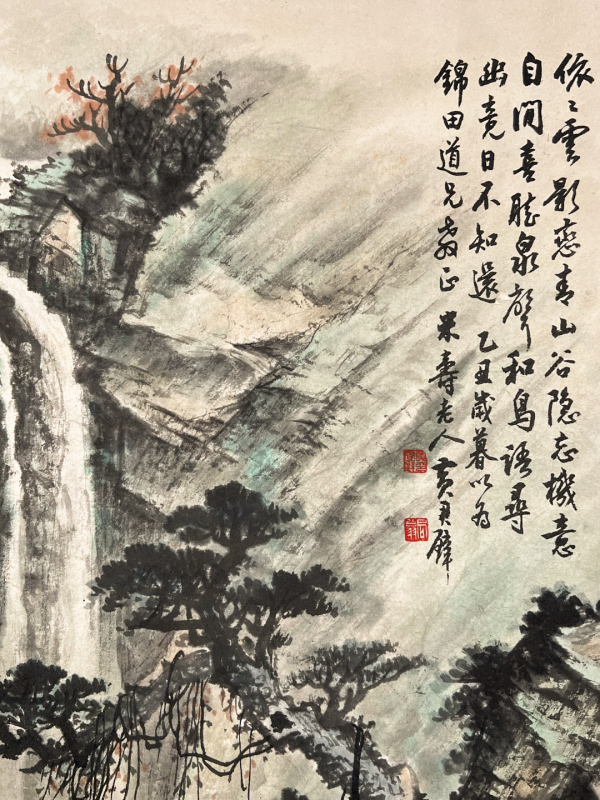 依〻雲影恋青山谷隐忘機意
自閒喜聽泉聲和鳥語尋
幽竟日不知還 乙丑歲暮以為
錦田道兄教正 米壽老人黃君璧